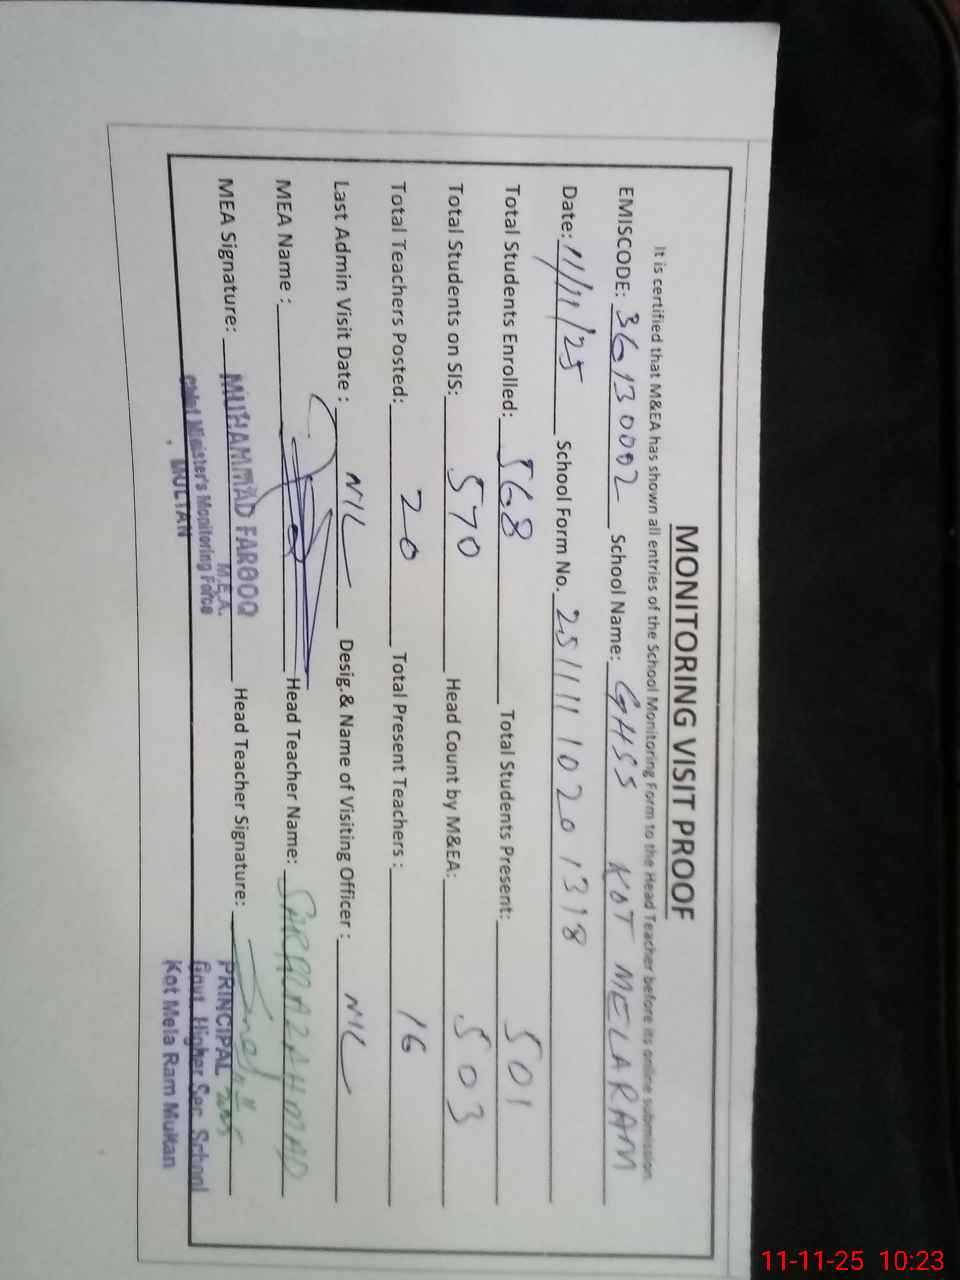 MONITORING VISIT PROOF
It is certified that M&EA has shown all entries of the School Monitoring Form to the Head Teacher before its online submission
EMISCODE: 36130002 School Name: GHSS KOT MELARAM
Date: 11/11/25 School Form No. 25111110201318
Total Students Enrolled: 568 Total Students Present: 501
Total Students on SIS: 570 Head Count by M&EA: 503
Total Teachers Posted: 20 Total Present Teachers : 16
Last Admin Visit Date : NIL Desig.& Name of Visiting Officer : NIL
MEA Name : Head Teacher Name: SARFRAZ AHMAD
MEA Signature: Head Teacher Signature:
MUHAMMAD FAROOQ
M.E.A.
Chief Minister's Monitoring Force
MULTAN
PRINCIPAL
Govt. Higher Sec. School
Kot Mela Ram Multan
11-11-25 10:23